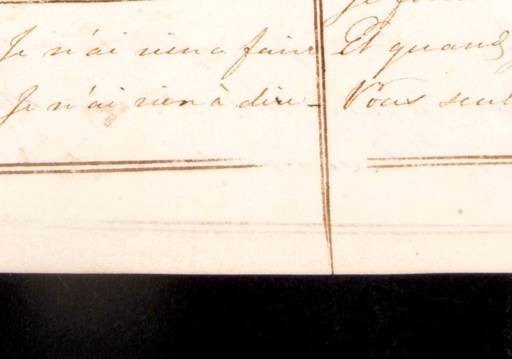 Je n'ai rien a faire
Je n'ai rien à dire -
Et quand
Vous seul